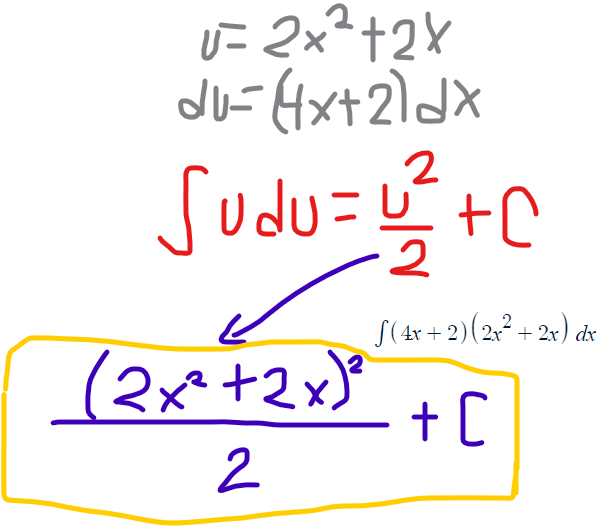 u = 2x² + 2x
du = (4x+2)dx
∫ u du = u²/2 + C
∫(4x + 2)(2x² + 2x) dx
(2x² + 2x)²/2 + C